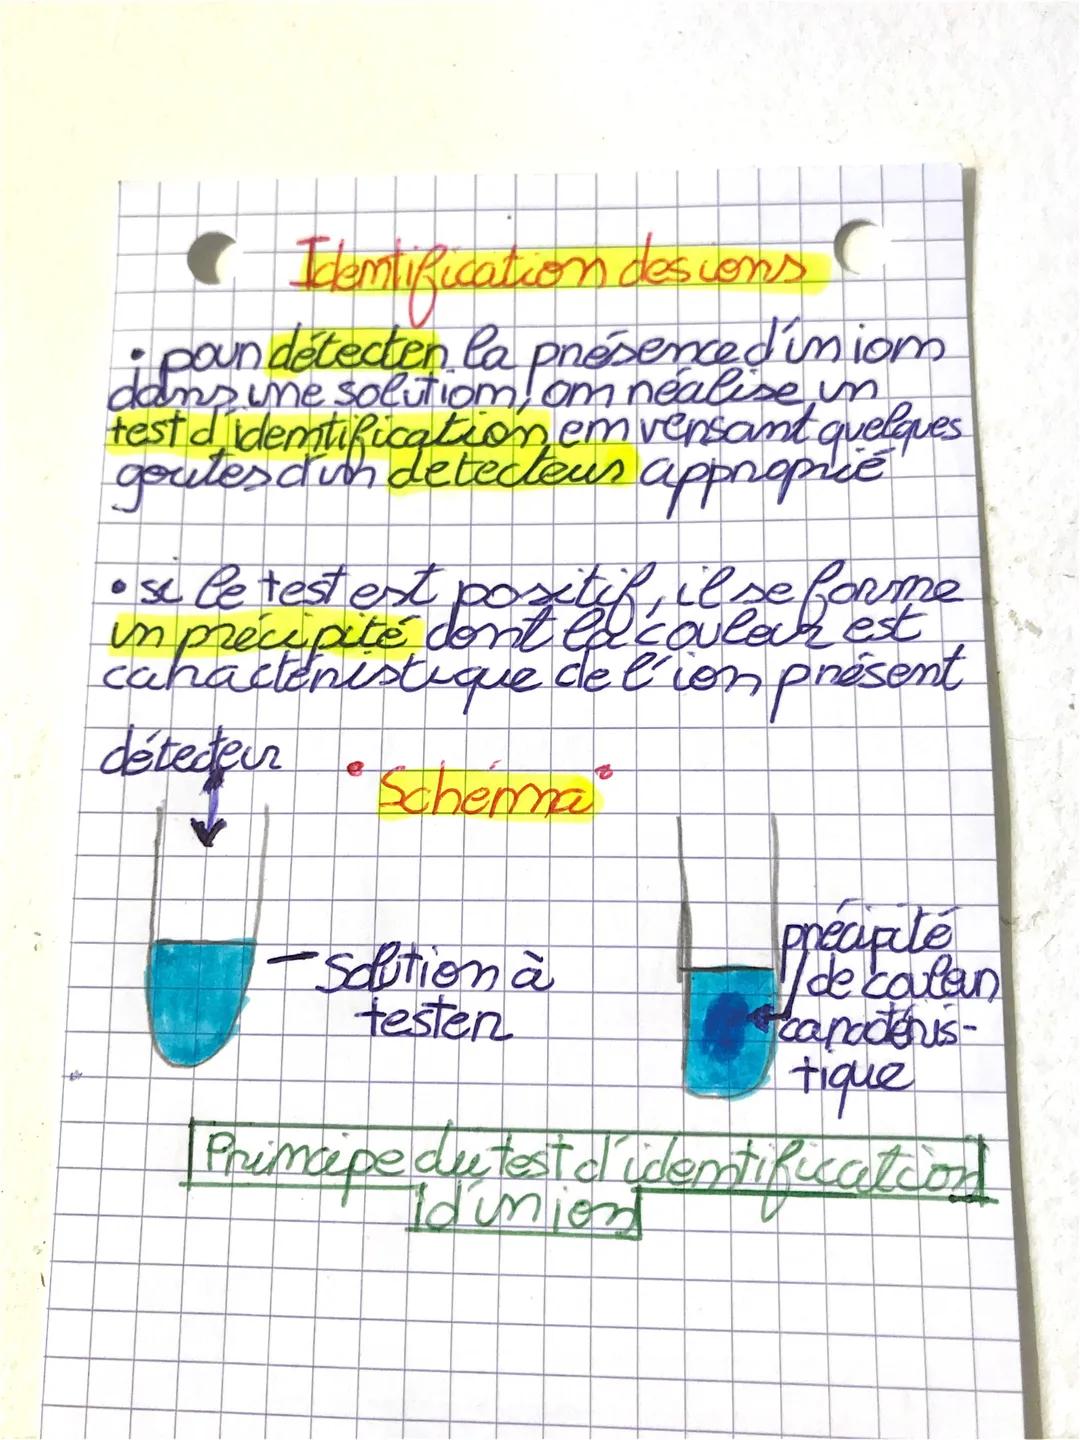 Identification des ions
• pour détecter la présence d'un ion
dans une solution, on réalise un
test d'identification, en versant quelques
goutes d'un detecteur approprié
• si le test est positif, il se forme
un précipité dont la couleur est
caractéristique de l'ion présent
détecteur
• Schéma •
- Solution à
tester
précipité
de couleur
caractéris-
tique
Principe du test d'identification
d'un ion